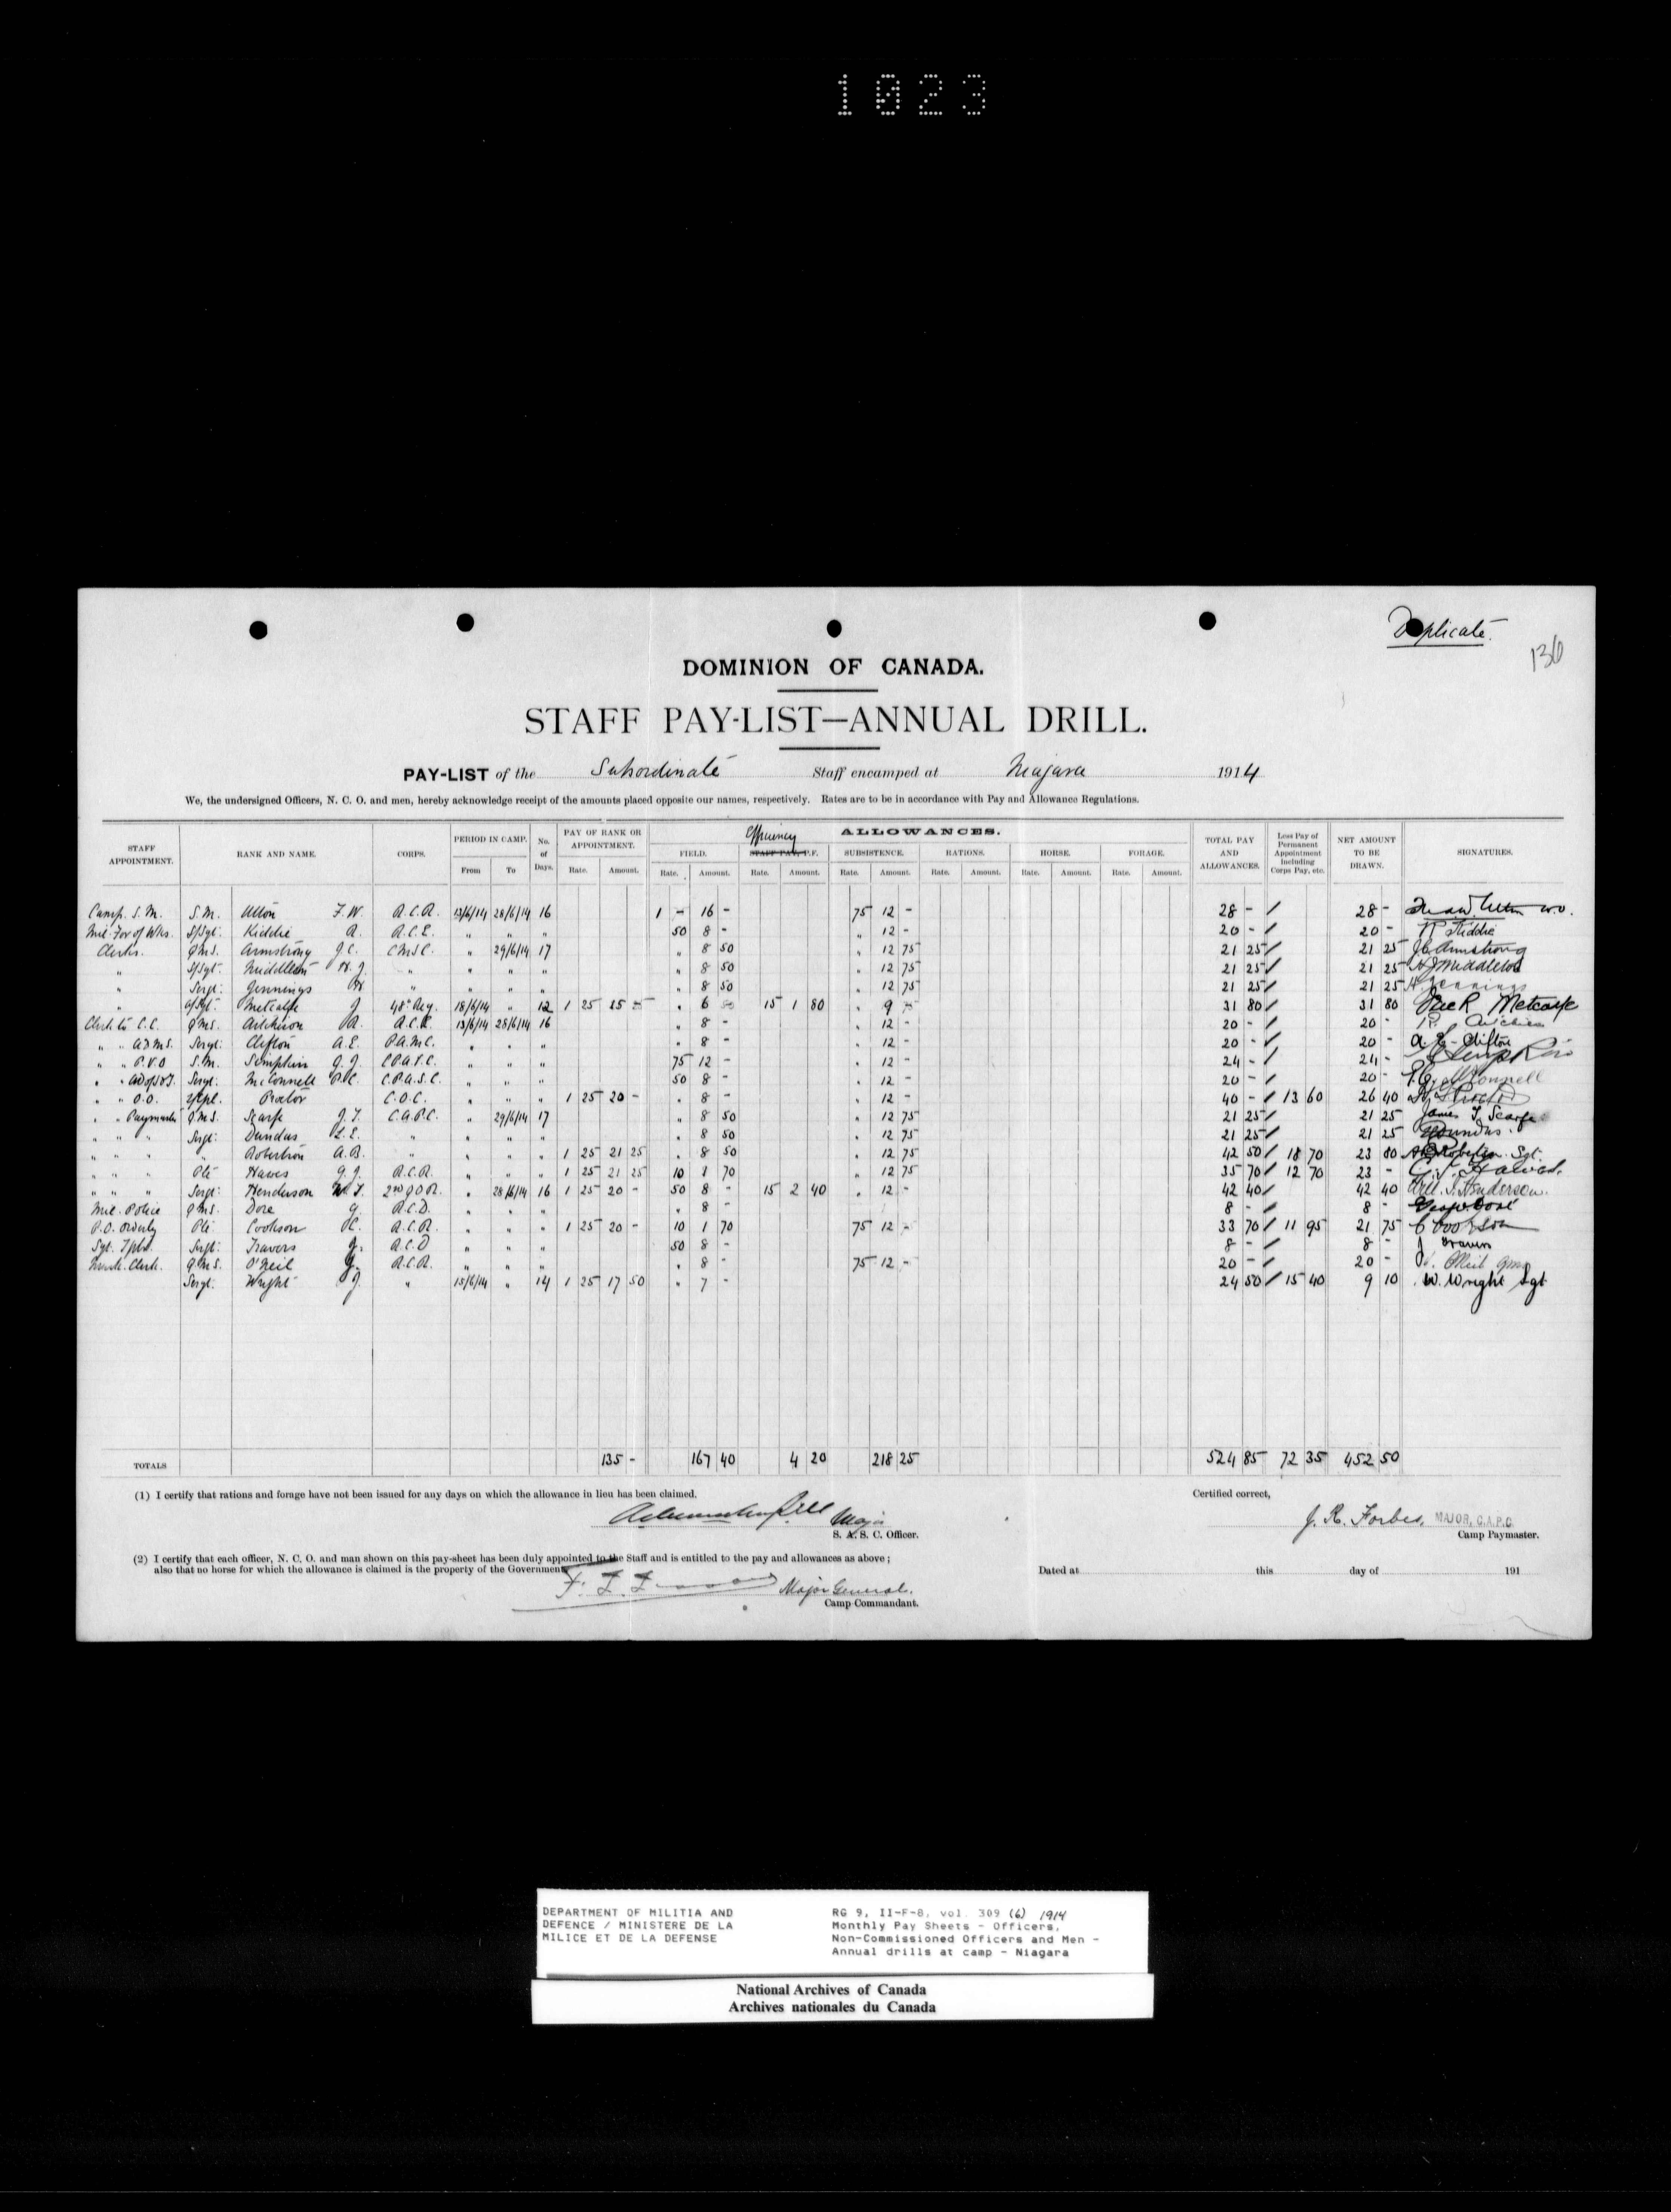 1023
Duplicate.
136
DOMINION OF CANADA.
STAFF PAY-LIST—ANNUAL DRILL.
PAY-LIST of the Subordinate Staff encamped at Niagara 1914
We, the undersigned Officers, N. C. O. and men, hereby acknowledge receipt of the amounts placed opposite our names, respectively. Rates are to be in accordance with Pay and Allowance Regulations.
STAFF APPOINTMENT. RANK AND NAME. CORPS. PERIOD IN CAMP. From To No. of Days. PAY OF RANK OR APPOINTMENT. Rate. Amount. ALLOWANCES. FIELD. Rate. Amount. Efficiency STAFF PAY, P.F. Rate. Amount. SUBSISTENCE. Rate. Amount. RATIONS. Rate. Amount. HORSE. Rate. Amount. FORAGE. Rate. Amount. TOTAL PAY AND ALLOWANCES. Less Pay of Permanent Appointment Including Corps Pay, etc. NET AMOUNT TO BE DRAWN. SIGNATURES.
Camp. S.M. S.M. Utton F.W. R.C.R. 13/6/14 28/6/14 16 1 - 16 - 75 12 - 28 - / 28 - W.O.
Mil. For of Wks. S/Sgt. Kiddie R. R.C.E. " " " 50 8 - " 12 - 20 - / 20 - R Kiddie
Clerks. Q.M.S. Armstrong J.C. C.M.S.C. " 29/6/14 17 " 8 50 " 12 75 21 25 / 21 25 J.C. Armstrong
" S/Sgt. Middleton H.J. " " " " " 8 50 " 12 75 21 25 / 21 25 H J Middleton
" Sergt. Jennings H " " " " " 8 50 " 12 75 21 25 / 21 25 H. Jennings
" Metcalfe J 48th Reg. 18/6/14 " 12 1 25 15 - " 6 15 1 80 " 9 31 80 / 31 80 Metcalfe
Clerk to C.C. Q.M.S. Aitchison R. R.C.E. 13/6/14 28/6/14 16 " 8 - " 12 - 20 - / 20 -
" " A.D.M.S. Sergt. Clifton A.E. P.A.M.C. " " " " 8 - " 12 - 20 - / 20 - A. E. Clifton
" " P.V.O S.M. Simpkin G.J. C.P.A.S.C. " " " 75 12 - " 12 - 24 - / 24 -
" " Sergt. McConnell P.C. C.P.A.S.C. " " " 50 8 - " 12 - 20 - / 20 - McConnell
" " O.O. Proctor C.O.C. " " " 1 25 20 - " 8 - " 12 - 40 - / 13 60 26 40
" " Paymaster Q.M.S. Scarfe J.T. C.A.P.C. " 29/6/14 17 " 8 50 " 12 75 21 25 / 21 25 James T. Scarfe
" " " Sergt. Dundas L.E. " " " " " 8 50 " 12 75 21 25 / 21 25 Dundas.
" " " " Robertson A.B. " " " " 1 25 21 25 " 8 50 " 12 75 42 50 / 18 70 23 80 Robertson Sgt.
" " " Pte Hawes G.J. R.C.R. " " " 1 25 21 25 10 1 70 " 12 75 35 70 / 12 70 23 -
" " " Sergt. Henderson W.T. 2nd Q.O.R. " 28/6/14 16 1 25 20 - 50 8 - 15 2 40 " 12 - 42 40 / 42 40 Will. T. Henderson.
Mil. Police Q.M.S. Dore G. R.C.D. " " " " 8 - 8 - / 8 -
P.O. Orderly Pte Cookson C. R.C.R. " " " 1 25 20 - 10 1 70 75 12 - 33 70 / 11 95 21 75 C Cookson
Sgt. Sergt. Travers J. R.C.D " " " 50 8 - 8 - / 8 - J Travers
Clerk. Q.M.S. O'Neil J. R.C.R. " " " " 8 - 75 12 - 20 - / 20 - O'Neil QMS
Sergt. Wright J. " 15/6/14 " 14 1 25 17 50 " 7 - 24 50 / 15 40 9 10 W. Wright Sgt
TOTALS 135 - 167 40 4 20 218 25 524 85 72 35 452 50
(1) I certify that rations and forage have not been issued for any days on which the allowance in lieu has been claimed.
Major
S. A. S. C. Officer.
Certified correct,
J. R. Forbes, MAJOR, C.A.P.C.
Camp Paymaster.
(2) I certify that each officer, N. C. O. and man shown on this pay-sheet has been duly appointed to the Staff and is entitled to the pay and allowances as above;
also that no horse for which the allowance is claimed is the property of the Government.
Major General.
Camp Commandant.
Dated at this day of 191
DEPARTMENT OF MILITIA AND
DEFENCE / MINISTERE DE LA
MILICE ET DE LA DEFENSE
RG 9, II-F-8, vol. 309 (6) 1914
Monthly Pay Sheets - Officers,
Non-Commissioned Officers and Men -
Annual drills at camp - Niagara
National Archives of Canada
Archives nationales du Canada